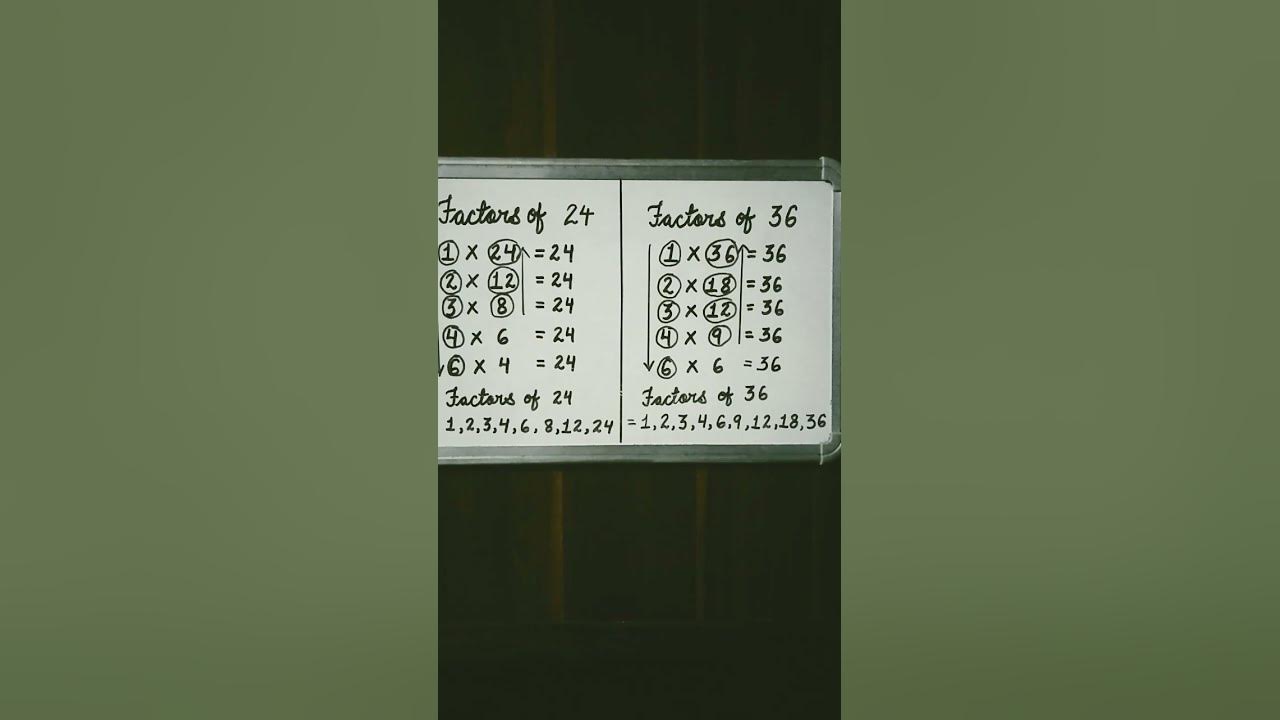 Factors of 24
1 × 24 = 24
2 × 12 = 24
3 × 8 = 24
4 × 6 = 24
6 × 4 = 24
Factors of 24
1,2,3,4,6,8,12,24
Factors of 36
1 × 36 = 36
2 × 18 = 36
3 × 12 = 36
4 × 9 = 36
6 × 6 = 36
Factors of 36
= 1,2,3,4,6,9,12,18,36